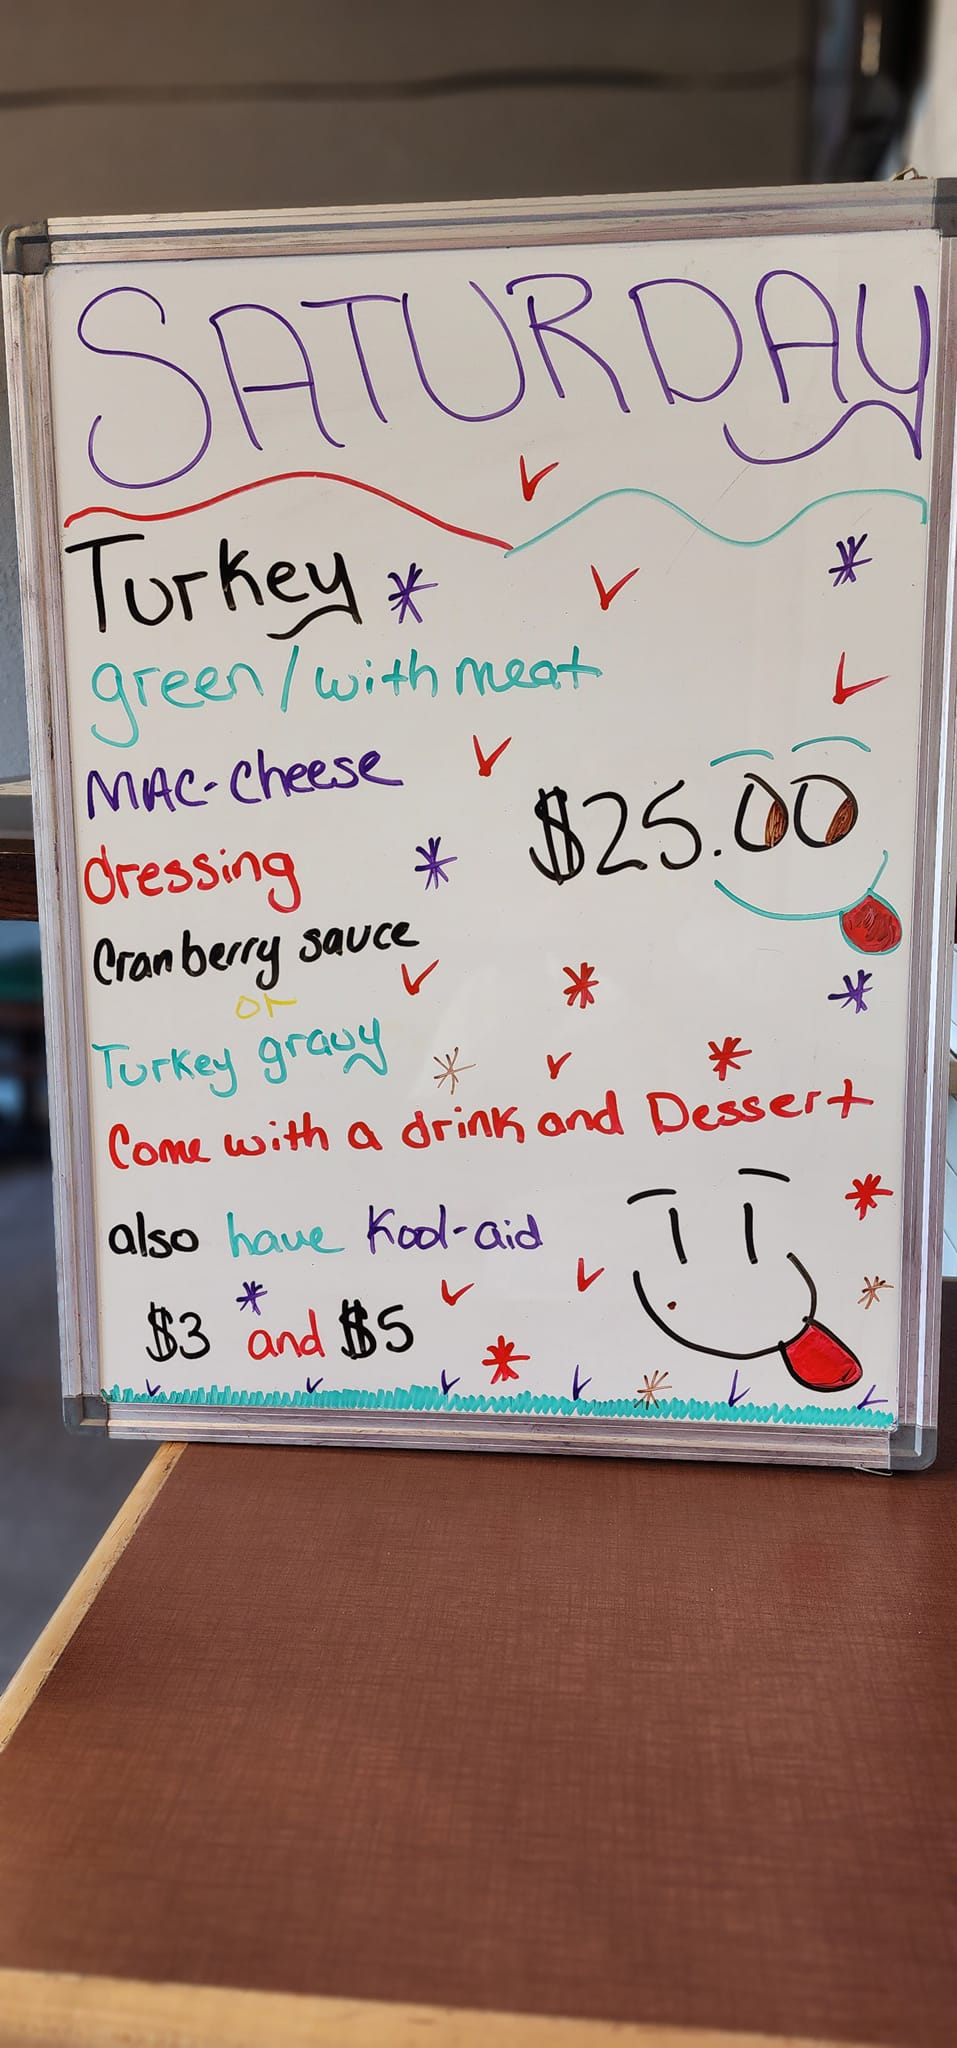 SATURDAY
Turkey
green/with meat
MAC-Cheese
$25.00
dressing
Cranberry sauce
or
Turkey gravy
Come with a drink and Dessert
also have Kool-aid
$3 and $5